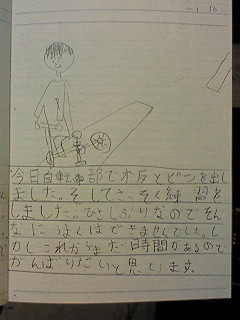 今日自転車部で木反とピンを出し
ました。そしてさっそく練習を
しました。ひさしぶりなのでそん
なにうまくはできませんでした。し
かしこれからまだ時間があるので
がんばりたいと思います。